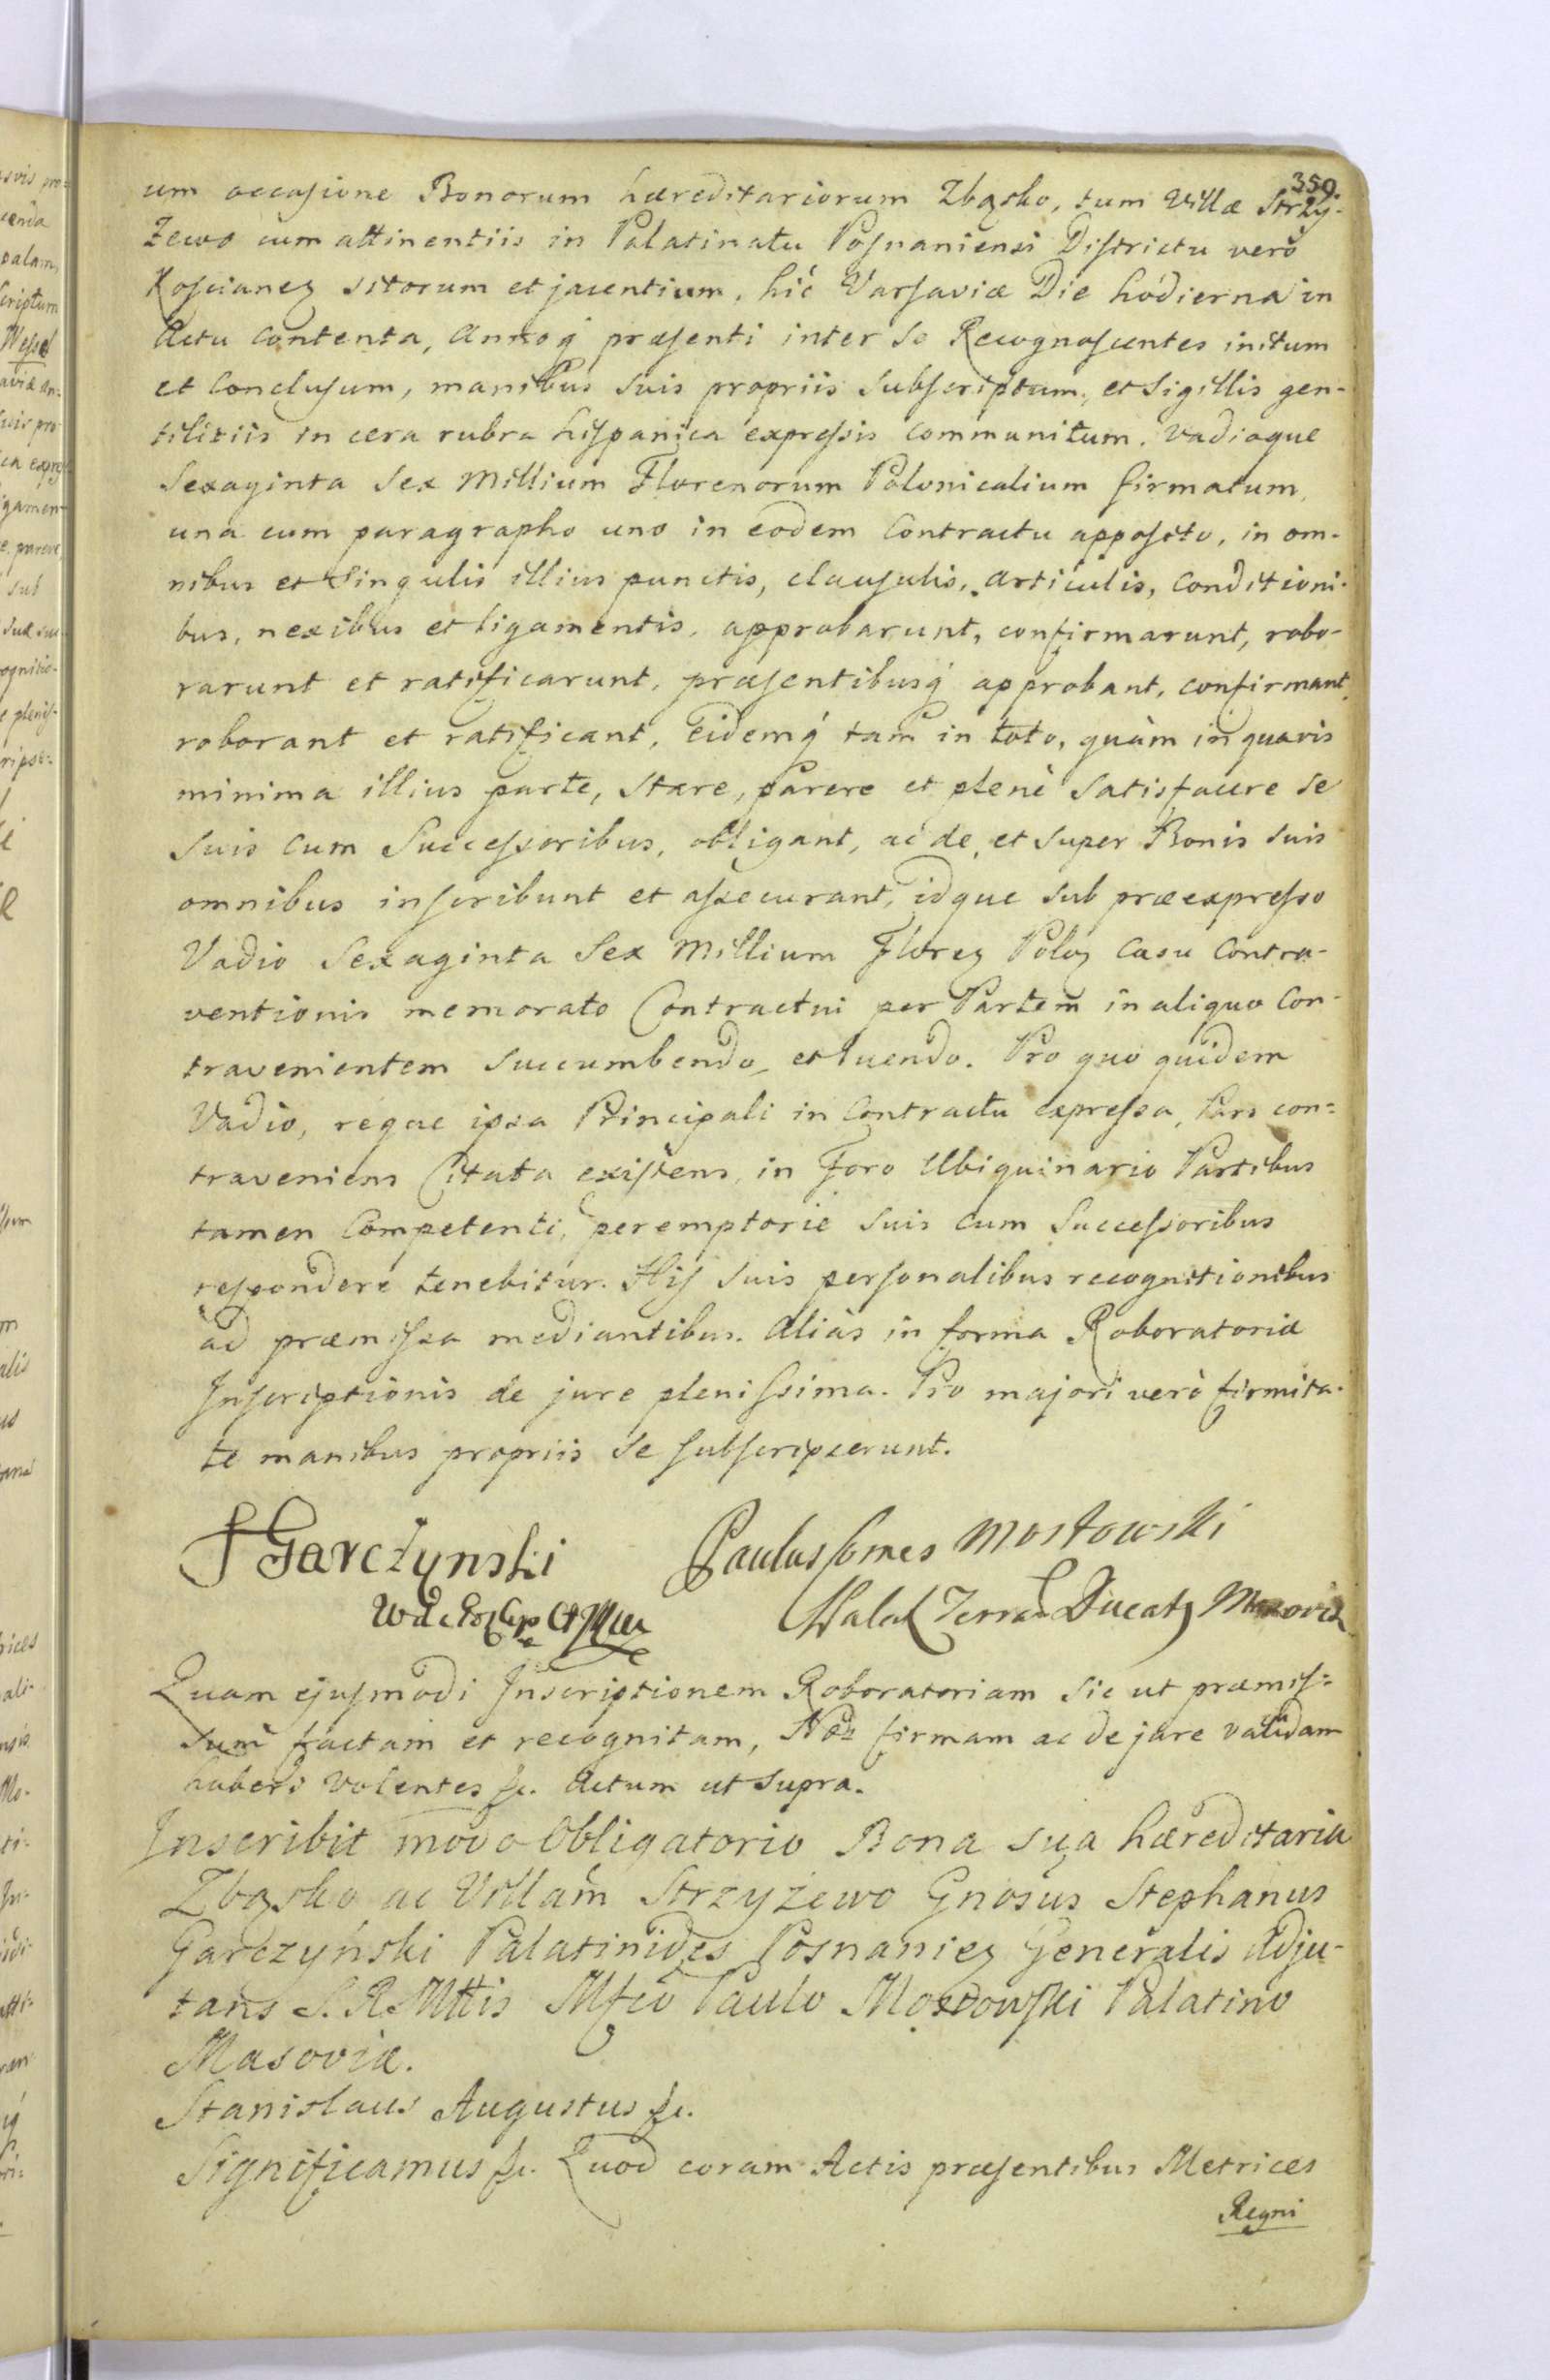 359.
um occasione Bonorum hæreditariorum Zbąsko, tum Villæ Strzy-
żewo cum attinentiis in Palatinatu Posnaniensi Districtu verò
Koscianeȝ sitorum et jacentium, hic Varsaviæ Die hodierna in
Actu contenta, Annoq́ præsenti inter se Recognoscentes initum
et Conclusum, manibus suis propriis subscriptum, et Sigillis gen-
tilitiis in cera rubra hispanica expressis communitum. Vadioque
Sexaginta Sex Millium Florenorum Polonicalium firmatum,
una cum paragrapho uno in eodem Contractu apposito, in om-
nibus et singulis illius punctis, clausulis, articulis, conditioni-
bus, nexibus et ligamentis, approbarunt, confirmarunt, robo-
rarunt et ratificarunt, præsentibusq́ approbant, confirmant,
roborant et ratificant, Eidemq́ tam in toto, quàm in quavis
minima illius parte, stare, parere et plenè satisfacere se
suis cum Successoribus, obligant, ac de, et super Bonis suis
omnibus inscribunt et assecurant, idque sub præexpresso
Vadio Sexaginta Sex Millium Floreȝ Poloȝ casu Contra-
ventionis memorato Contractui per Partem in aliquo Con-
travenientem succumbendo, et luendo. Pro quo quidem
Vadio, reque ipsa Principali in Contractu expressa, Pars con=
traveniens Citata existens, in Foro Ubiquinario Partibus
tamen Competenti, peremptorie suis cum Successoribus
respondere tenebitur. His suis personalibus recognitionibus
ad præmissa mediantibus. Aliàs in forma Roboratoriæ
Inscriptionis de jure plenissima. Pro majori verò firmita-
te manibus propriis se subscripserunt.
Garczynski
Paulus Comes Mostowski
Palat Terra Ducatȝ Mazovia
Quam ejusmodi Inscriptionem Roboratoriam sic ut præmis=
sum factam et recognitam, Nos firmam ac de jure validam
haberi volentes &c. Actum ut supra.
Inscribit modo Obligatorio Bona sua hæreditaria
Zbąsko ac Villam Strzyżewo Gnosus Stephanus
Garczyński Palatinides Posnanieȝ Generalis Adju-
tans S. R. Mttis Mfco Paulo Mostowski Palatino
Masoviæ.
Stanislaus Augustus &c.
Significamus &c. Quod coram Actis præsentibus Metrices
Regni